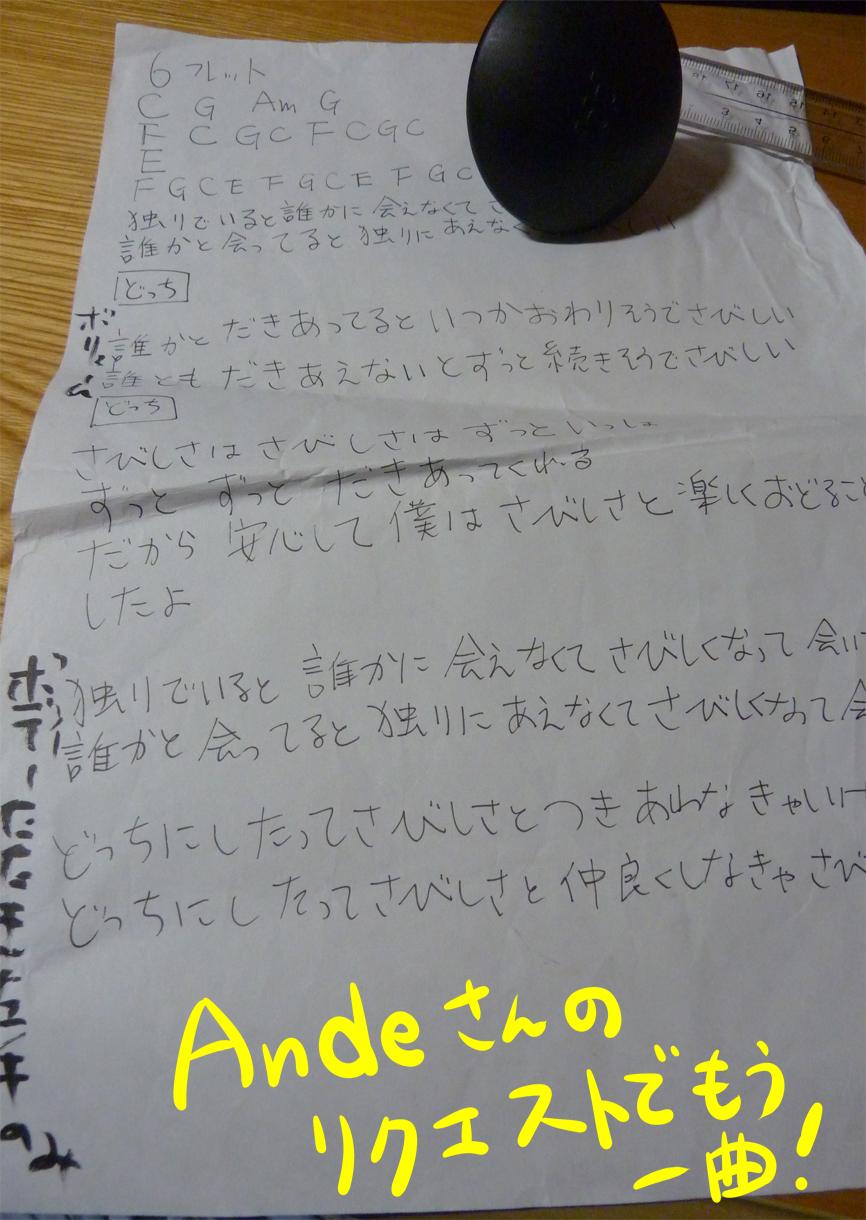 6フレット
C G Am G
F C GC F C GC
E
F G C E F G C E F G C
独りでいると誰かに会えなくてさ
誰かと会ってると独りにあえなく しい
どっち
誰かとだきあってるといつかおわりそうでさびしい
誰ともだきあえないとずっと続きそうでさびしい
どっち
さびしさはさびしさはずっといっしょ
ずっとずっとだきあってくれる
だから安心して僕はさびしさと楽しくおどること
したよ
独りでいると誰かに会えなくてさびしくなって会い
誰かと会ってると独りにあえなくてさびしくなって会
どっちにしたってさびしさとつきあわなきゃい
どっちにしたってさびしさと仲良くしなきゃさび
のみ
Andeさんの
リクエストでもう
一曲!